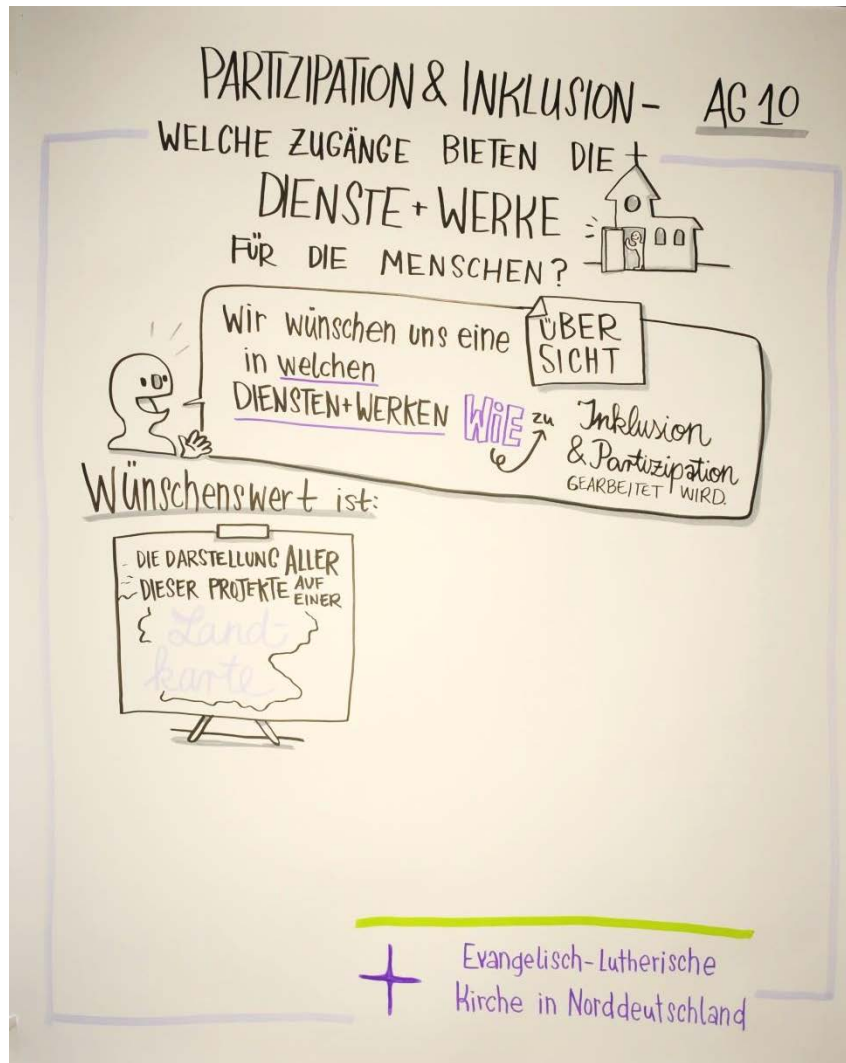 PARTIZIPATION & INKLUSION – AG 10
WELCHE ZUGÄNGE BIETEN DIE
DIENSTE + WERKE
FÜR DIE MENSCHEN?
Wir wünschen uns eine ÜBER
SICHT
in welchen
DIENSTEN+WERKEN WiE zu Inklusion
& Partizipation
GEARBEITET WIRD.
Wünschenswert ist:
DIE DARSTELLUNG ALLER
DIESER PROJEKTE AUF
EINER
Land-
karte
Evangelisch-Lutherische
Kirche in Norddeutschland